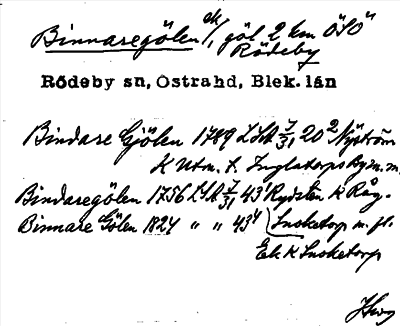 Binnaregölen ek/1, göl 2 km ÖSÖ"
Rödeby
Rödeby sn, Östrahd, Blek. län
Bindare Gjölen 1789 LSA 7/31 20² Nyström
K Utm. t. Inglatorps By m. m.
Bindaregölen 1756 LSA 7/31 43¹ Rydsten K Råg.
Binnare Gölen 1824 " " 43⁴ Lusketorp m. fl.
Ek K Lusketorp